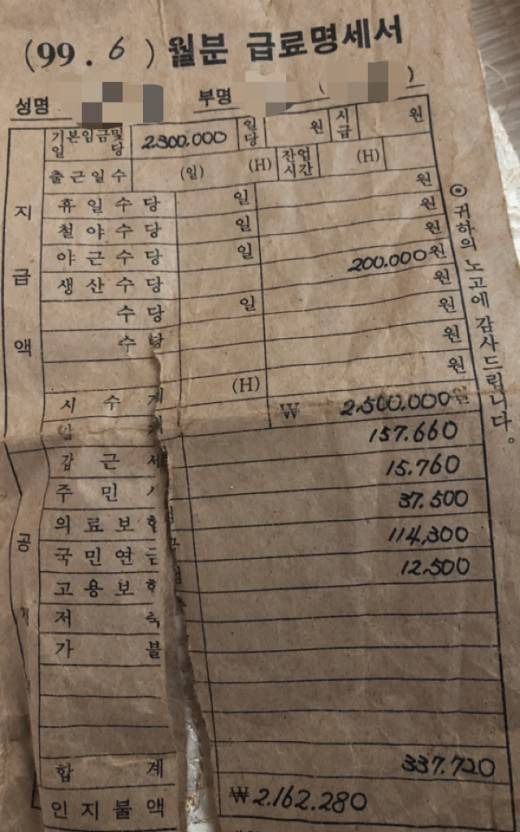 (99. 6) 월분 급료명세서
성명 부명 ( )
기본임금및 일당 2300.000 일당 원 시급 원
출근일수 (일) (H) 잔업시간 (H)
지급액
휴일수당 일 원
철야수당 일 원
야근수당 일 원
생산수당 200.000원
수당 일 원
수당 원
원
시수계 (H) 원
₩ 2.500.000원
공
갑근세 157.660
주민 15.760
의료보험 37.500
국민연금 114,300
고용보험 12.500
저축
가불
합계 337.720
인지불액 ₩2.162.280
◎ 귀하의 노고에 감사드립니다.